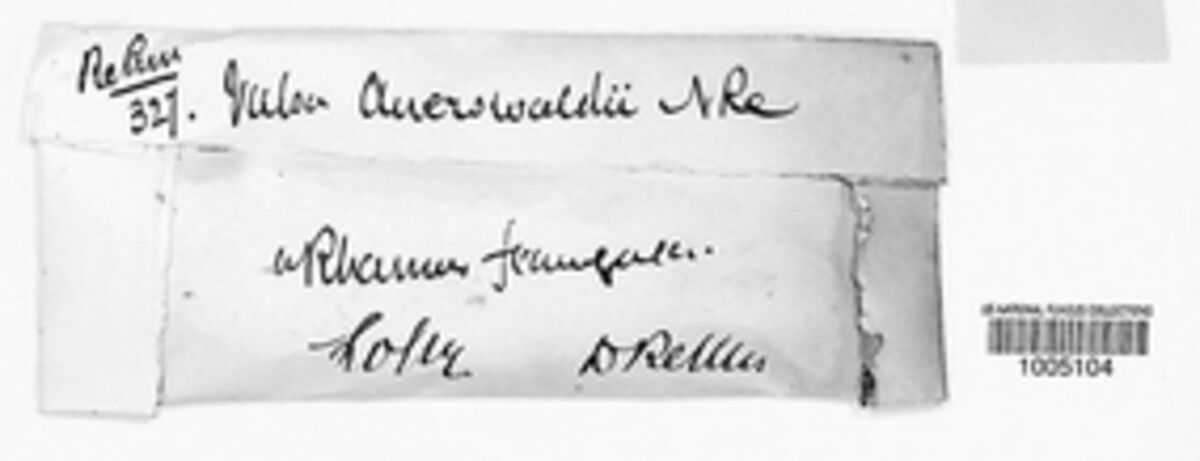 Rehm
327. Valsa Auerswaldii NKe
Rhamnus frangula.
US NATIONAL FUNGUS COLLECTIONS
1005104